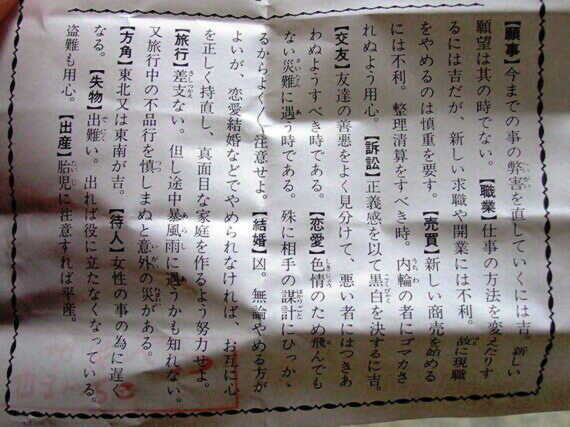 【願事】今までの事の弊害を直していくには吉。新しい
願望は其の時でない。【職業】仕事の方法を変えたりす
るには吉だが、新しい求職や開業には不利。故に現職
をやめるのは慎重を要す。【売買】新しい商売を始める
には不利。整理清算をすべき時。内輪の者にゴマカさ
れぬよう用心。【訴訟】正義感を以て黒白を決するに吉。
【交友】友達の善悪をよく見分けて、悪い者にはつきあ
わぬようすべき時である。【恋愛】色情のため飛んでも
ない災難に遇う時である。殊に相手の謀計にひっかゝ
るからよく〱注意せよ。【結婚】凶。無論やめる方が
よいが、恋愛結婚などでやめられなければ、お互に心
を正しく持直し、真面目な家庭を作るよう努力せよ。
【旅行】差支ない。但し途中暴風雨に遇うかも知れない。
又旅行中の不品行を慎しまぬと意外の災がある。
【方角】東北又は東南が吉。【待人】女性の事の為に遅く
なる。【失物】出難い。出れば役に立たなくなっている。
盗難も用心。【出産】胎児に注意すれば平産。